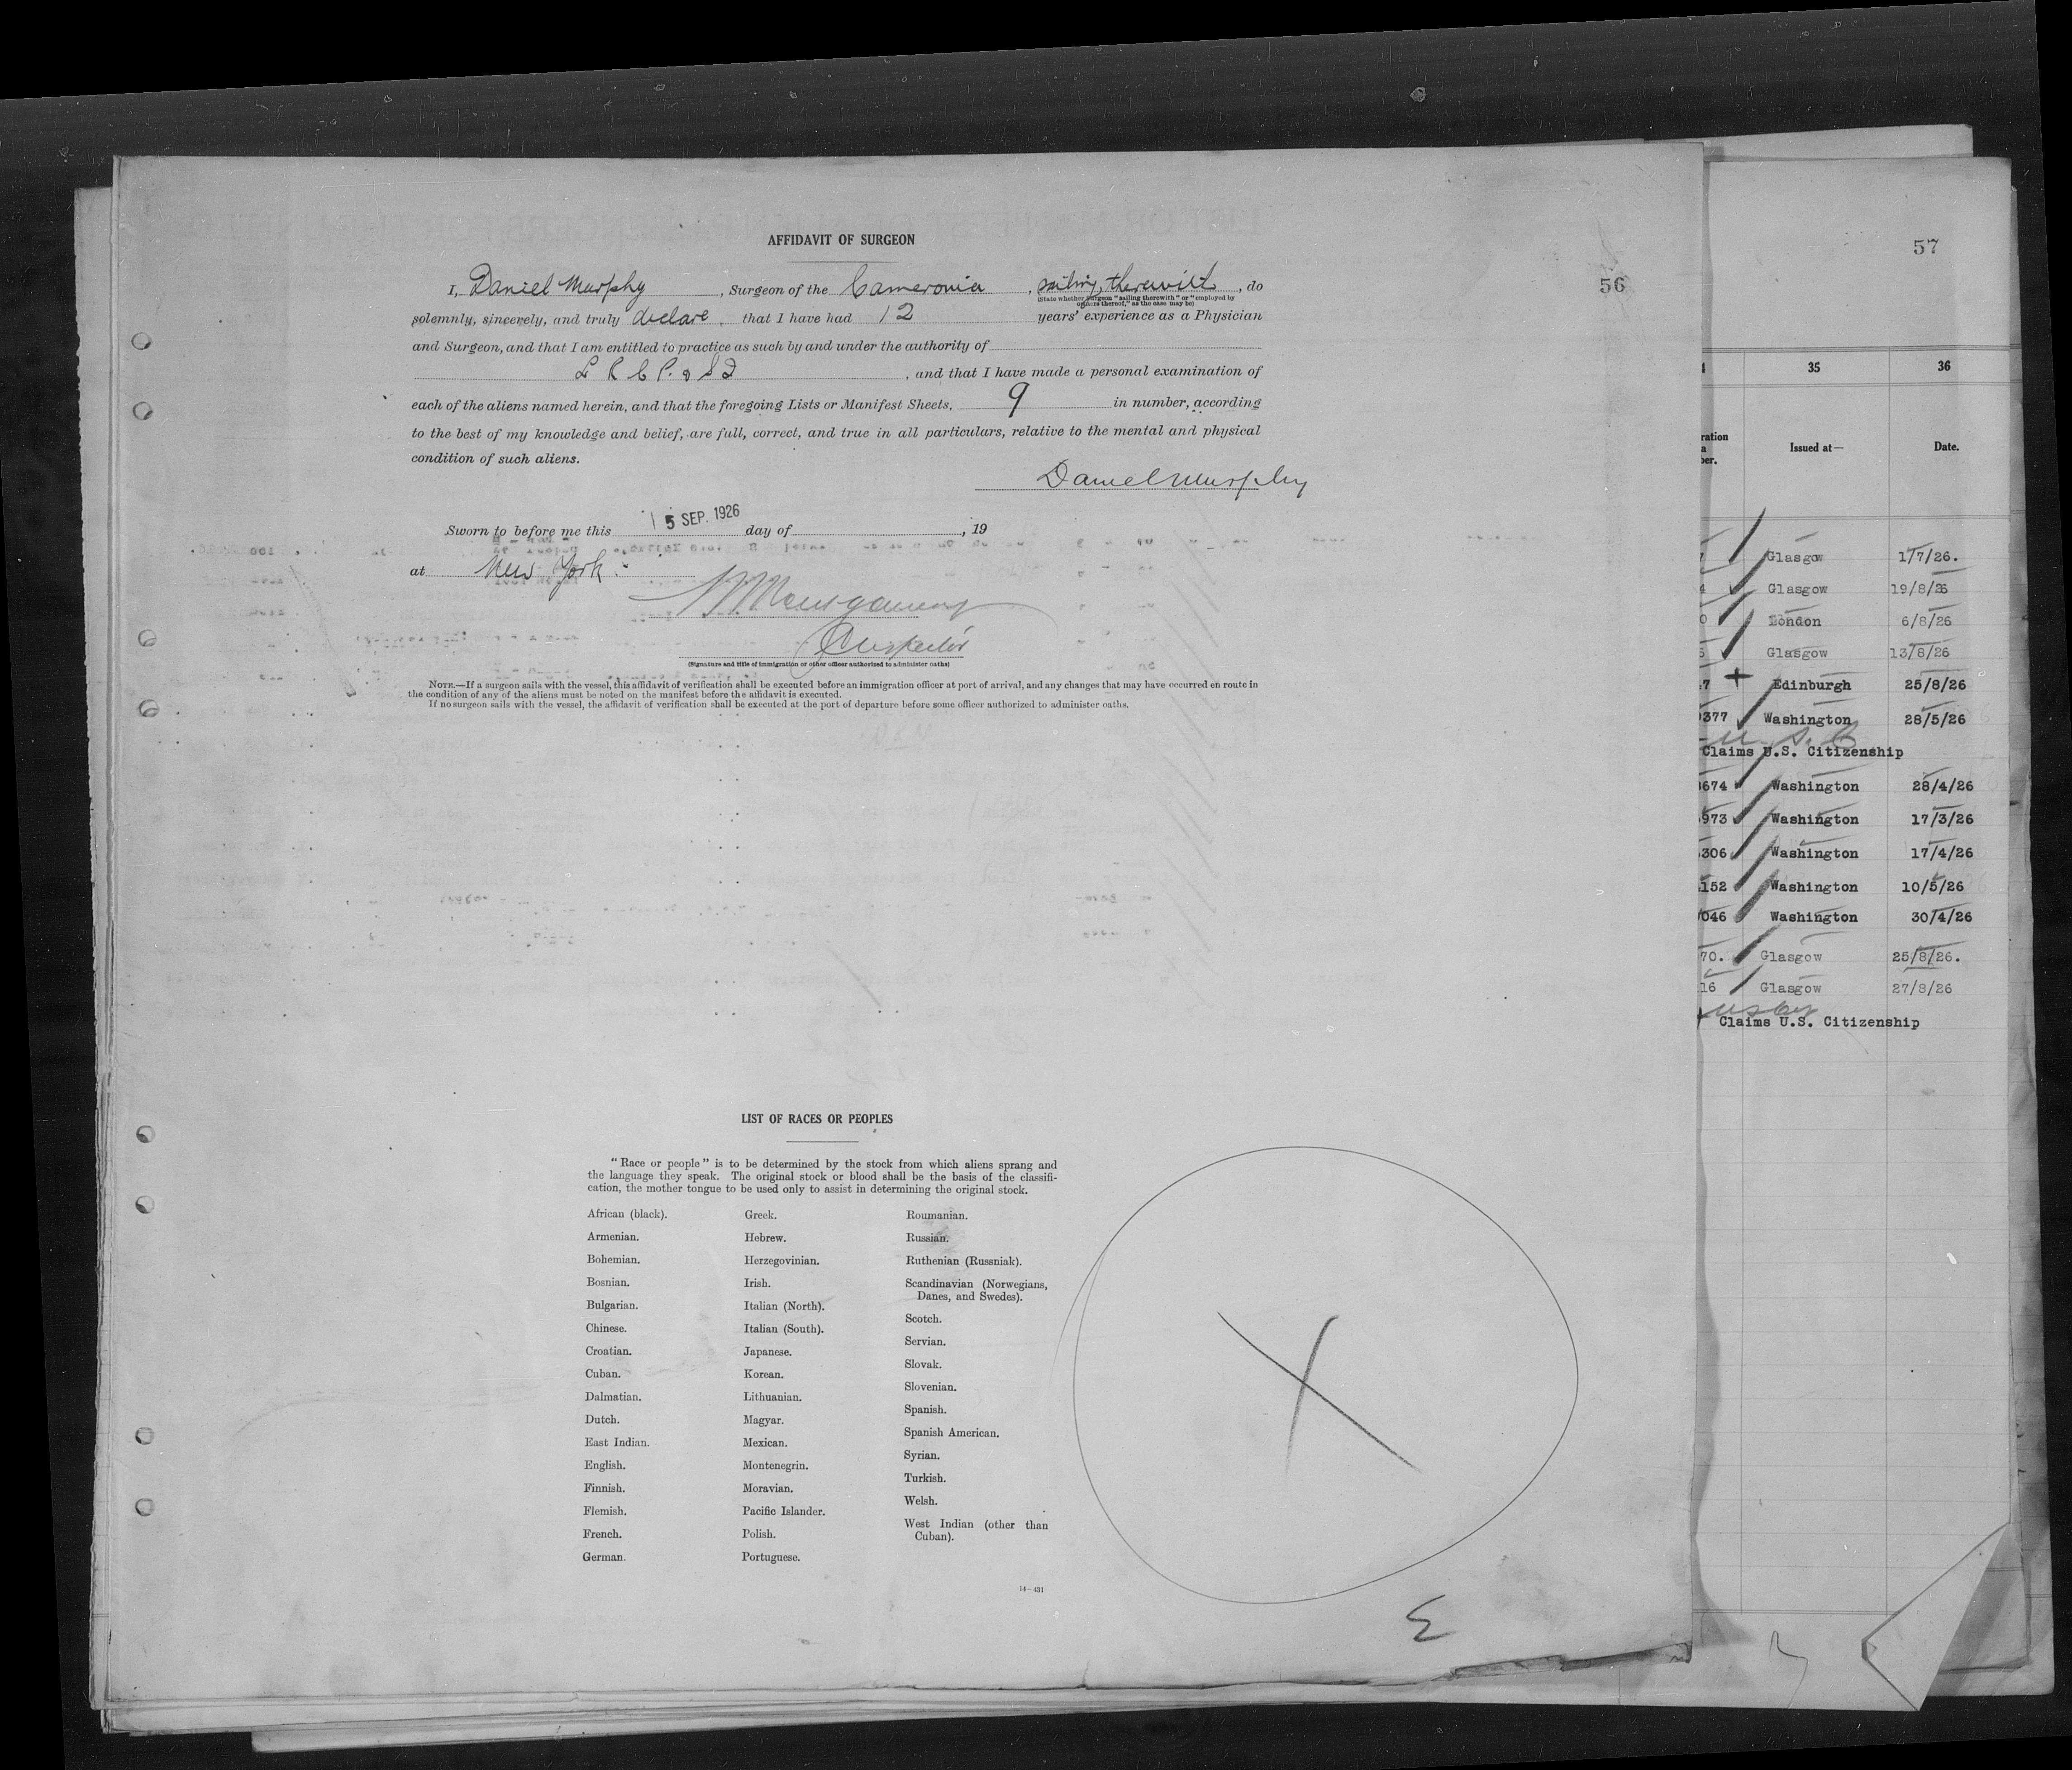 AFFIDAVIT OF SURGEON
I, Daniel Murphy, Surgeon of the Cameronia, sailing therewith, do
(State whether surgeon "sailing therewith" or "employed by
owners thereof," as the case may be)
solemnly, sincerely, and truly declare, that I have had 12 years' experience as a Physician
and Surgeon, and that I am entitled to practice as such by and under the authority of
L R C P. & S I, and that I have made a personal examination of
each of the aliens named herein, and that the foregoing Lists or Manifest Sheets, 9 in number, according
to the best of my knowledge and belief, are full, correct, and true in all particulars, relative to the mental and physical
condition of such aliens.
Daniel Murphy
Sworn to before me this 5 SEP. 1926 day of , 19
at New York.
Montgomery
Inspector
(Signature and title of immigration or other officer authorized to administer oaths)
NOTE.—If a surgeon sails with the vessel, this affidavit of verification shall be executed before an immigration officer at port of arrival, and any changes that may have occurred en route in
the condition of any of the aliens must be noted on the manifest before the affidavit is executed.
If no surgeon sails with the vessel, the affidavit of verification shall be executed at the port of departure before some officer authorized to administer oaths.
56
LIST OF RACES OR PEOPLES
"Race or people" is to be determined by the stock from which aliens sprang and
the language they speak. The original stock or blood shall be the basis of the classifi-
cation, the mother tongue to be used only to assist in determining the original stock.
African (black).
Armenian.
Bohemian.
Bosnian.
Bulgarian.
Chinese.
Croatian.
Cuban.
Dalmatian.
Dutch.
East Indian.
English.
Finnish.
Flemish.
French.
German.
Greek.
Hebrew.
Herzegovinian.
Irish.
Italian (North).
Italian (South).
Japanese.
Korean.
Lithuanian.
Magyar.
Mexican.
Montenegrin.
Moravian.
Pacific Islander.
Polish.
Portuguese.
Roumanian.
Russian.
Ruthenian (Russniak).
Scandinavian (Norwegians,
Danes, and Swedes).
Scotch.
Servian.
Slovak.
Slovenian.
Spanish.
Spanish American.
Syrian.
Turkish.
Welsh.
West Indian (other than
Cuban).
14—431
X
57
35 36
Issued at— Date.
Glasgow 1/7/26.
Glasgow 19/8/26
London 6/8/26
Glasgow 13/8/26
7 + Edinburgh 25/8/26
377 Washington 28/5/26
U.S.C
Claims U.S. Citizenship
674 Washington 28/4/26
973 Washington 17/3/26
306 Washington 17/4/26
152 Washington 10/5/26
046 Washington 30/4/26
70. Glasgow 25/8/26.
16 Glasgow 27/8/26
Claims U.S. Citizenship